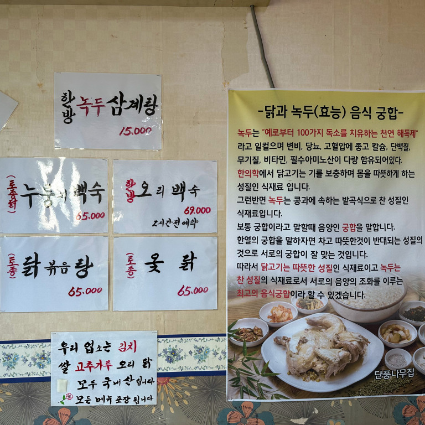 한방 녹두 삼계탕
15.000
(토종닭) 누룽지 백숙
65.000
한방 오리 백숙
69.000
2시간전예약
(토종) 닭 볶음탕
65.000
(토종) 옻 닭
65.000
우리 업소는 김치
쌀 고추가루 오리 닭
모두 국내산 입니다
모든 메뉴 포장 됩니다
-닭과 녹두(효능) 음식 궁합-
녹두는 "예로부터 100가지 독소를 치유하는 천연 해독제"
라고 일컬으며 변비, 당뇨, 고혈압에 좋고 칼슘, 단백질,
무기질, 비타민, 필수아미노산이 다량 함유되어있다.
한의학에서 닭고기는 기를 보충하며 몸을 따뜻하게 하는
성질인 식재료 입니다.
그런반면 녹두는 콩과에 속하는 발곡식으로 찬 성질인
식재료입니다.
보통 궁합이라고 말할때 음양인 궁합을 말합니다.
한열의 궁합을 말하자면 차고 따뜻한것이 반대되는 성질의
것으로 서로의 궁합이 잘 맞는 것입니다.
따라서 닭고기는 따뜻한 성질인 식재료이고 녹두는
찬 성질의 식재료로서 서로의 음양의 조화를 이루는
최고의 음식궁합이라 할 수 있겠습니다.
단풍나무집